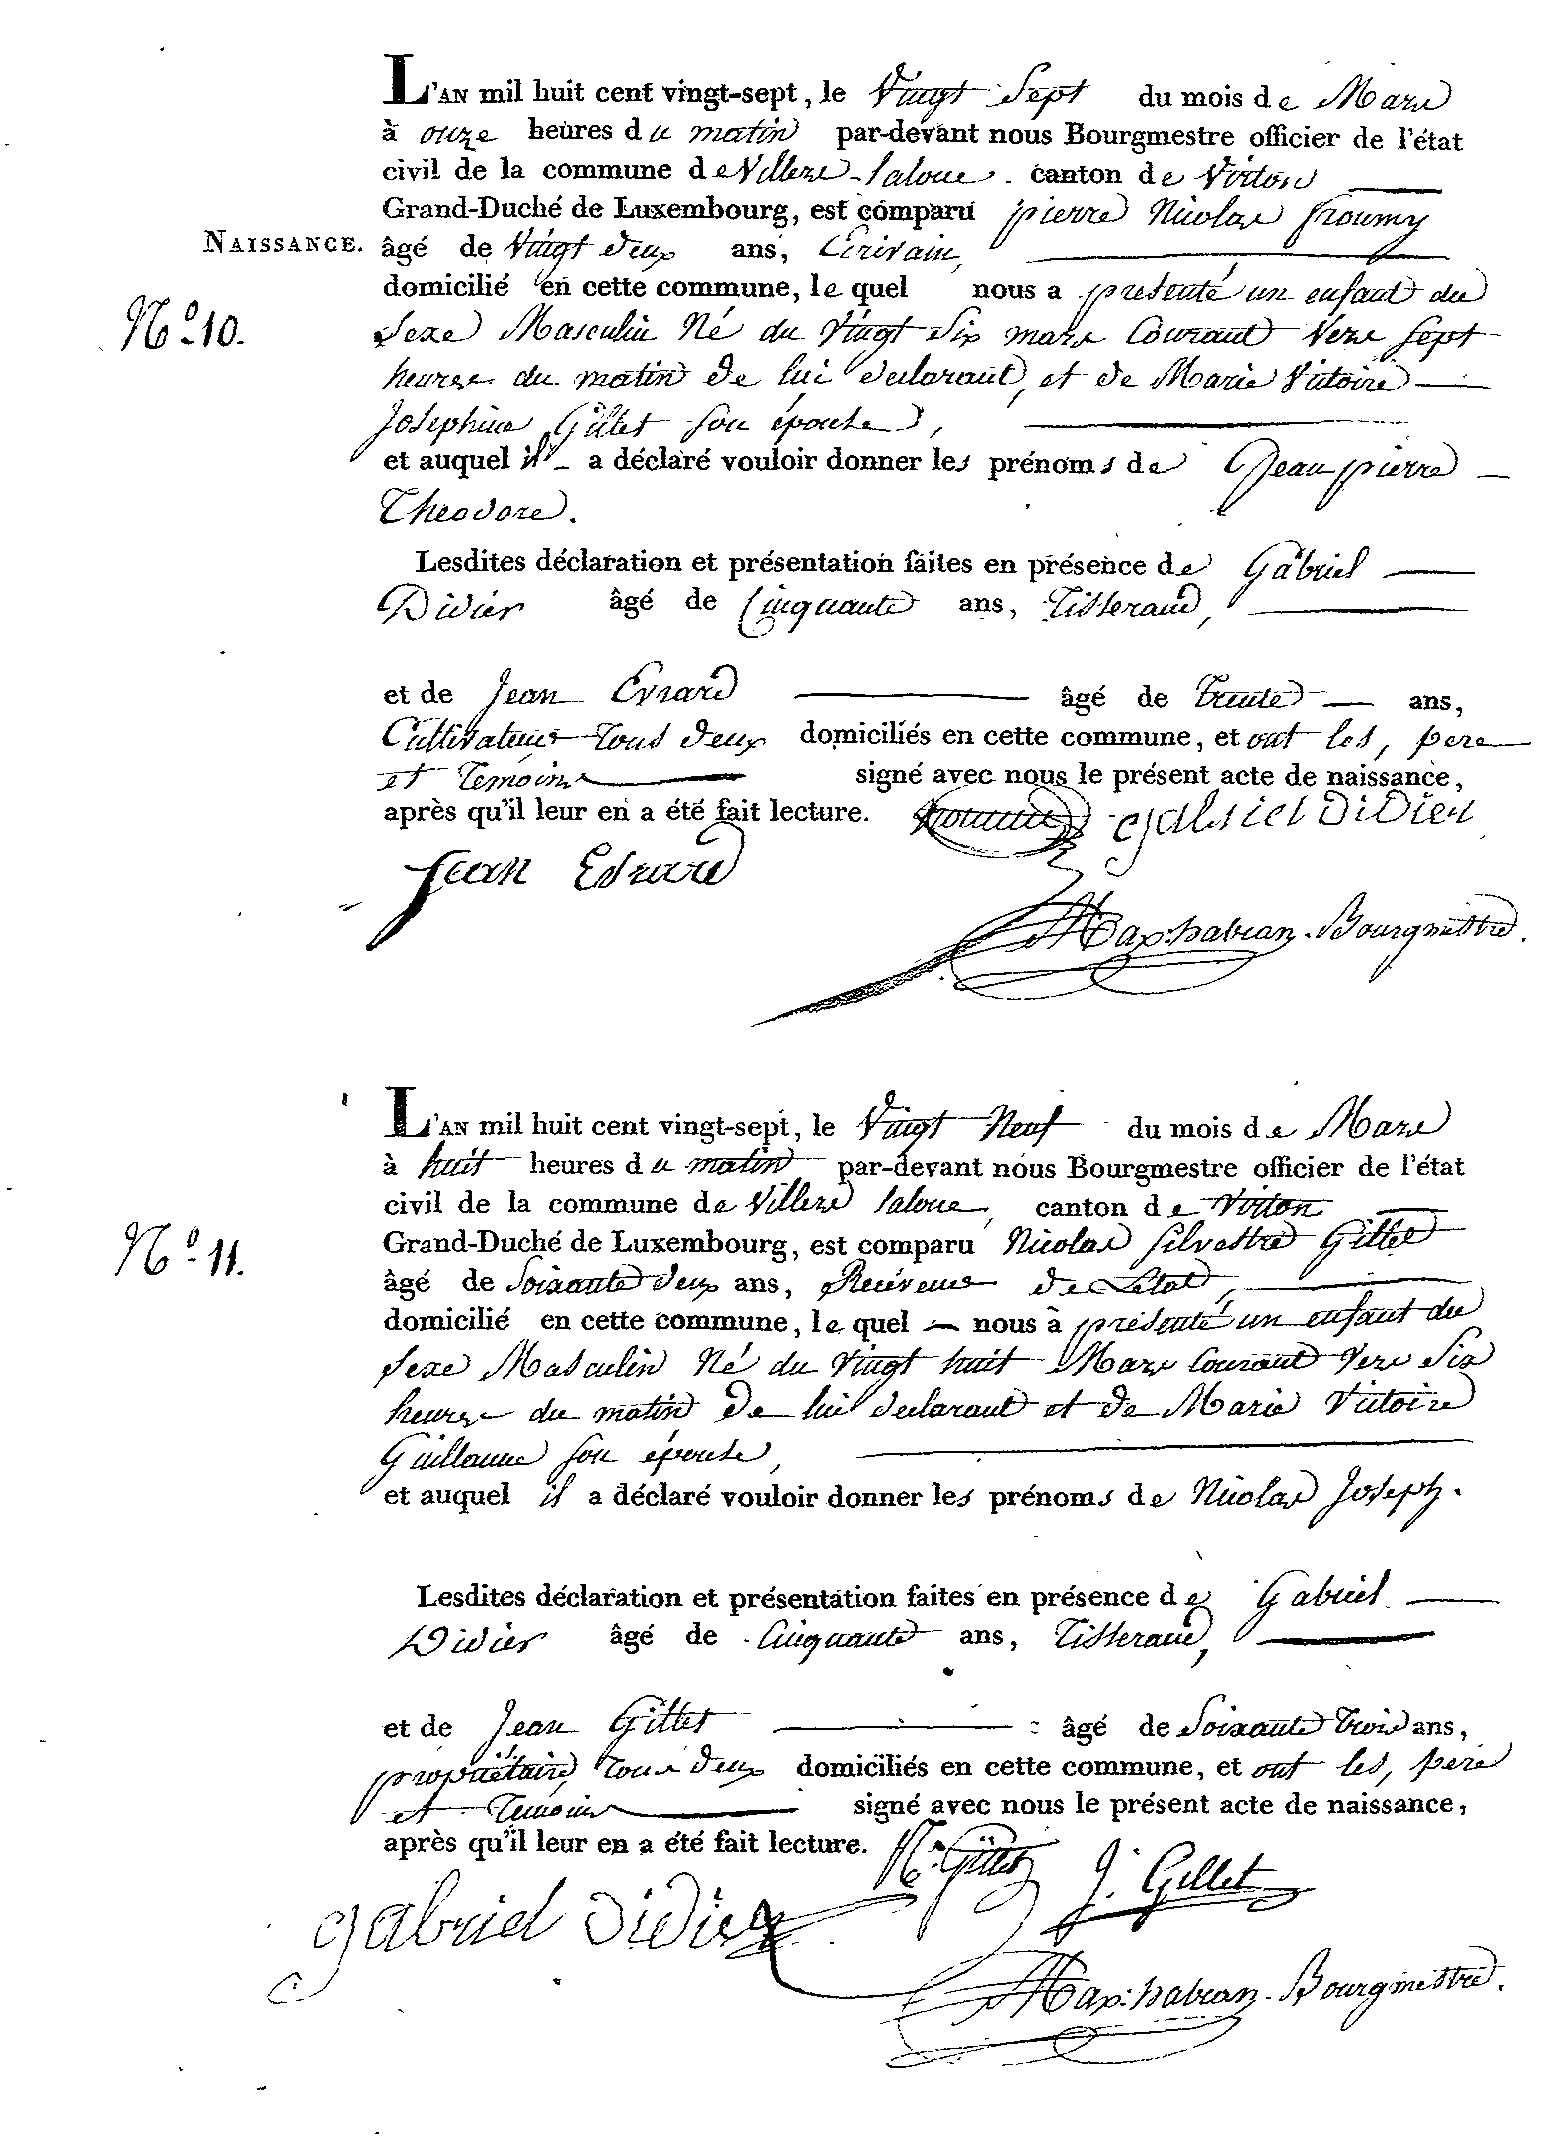 L'AN mil huit cent vingt-sept, le Vingt Sept du mois de Mars
à onze heures du matin par-devant nous Bourgmestre officier de l'état
civil de la commune de Villers-laloue. canton de Virton
Grand-Duché de Luxembourg, est comparu pierre Nicolas froumy
NAISSANCE. âgé de Vingt deux ans, Ecrivain,
domicilié en cette commune, le quel nous a présenté un enfant du
N.o 10. Sexe Masculin Né du Vingt Six mars Courant Vers sept
heures du matin de lui declarant, et de Marie Victoire
Josephine Gillet son épouse,
et auquel il a déclaré vouloir donner les prénoms de Jean pierre
Theodore.
Lesdites déclaration et présentation faites en présence de Gabriel
Didier âgé de Cinquante ans, Tisserand,
et de Jean Evrard âgé de trente ans,
Cultivateur tous deux domiciliés en cette commune, et ont les, pere
et temoins signé avec nous le présent acte de naissance,
après qu'il leur en a été fait lecture. gabriel Didier
Jean Evrard
Bourgmestre.
L'AN mil huit cent vingt-sept, le Vingt Neuf du mois de Mars
à huit heures du matin par-devant nous Bourgmestre officier de l'état
civil de la commune de Villers laloue, canton de Virton
N.o 11. Grand-Duché de Luxembourg, est comparu Nicolas Silvestre Gillet
âgé de Soixante deux ans, Receveur de Letat,
domicilié en cette commune, le quel nous à présenté un enfant du
Sexe Masculin Né du Vingt huit Mars Courant Vers Six
heures du matin de lui declarant et de Marie Victoire
Guillaume son épouse,
et auquel il a déclaré vouloir donner les prénoms de Nicolas Joseph.
Lesdites déclaration et présentation faites en présence de Gabriel
Didier âgé de Cinquante ans, Tisserand,
et de Jean Gillet âgé de Soixante trois ans,
propriétaire, tous deux domiciliés en cette commune, et ont les, pere
et temoins signé avec nous le présent acte de naissance,
après qu'il leur en a été fait lecture. N. Gillet J. Gillet
gabriel Didier
Bourgmestre.